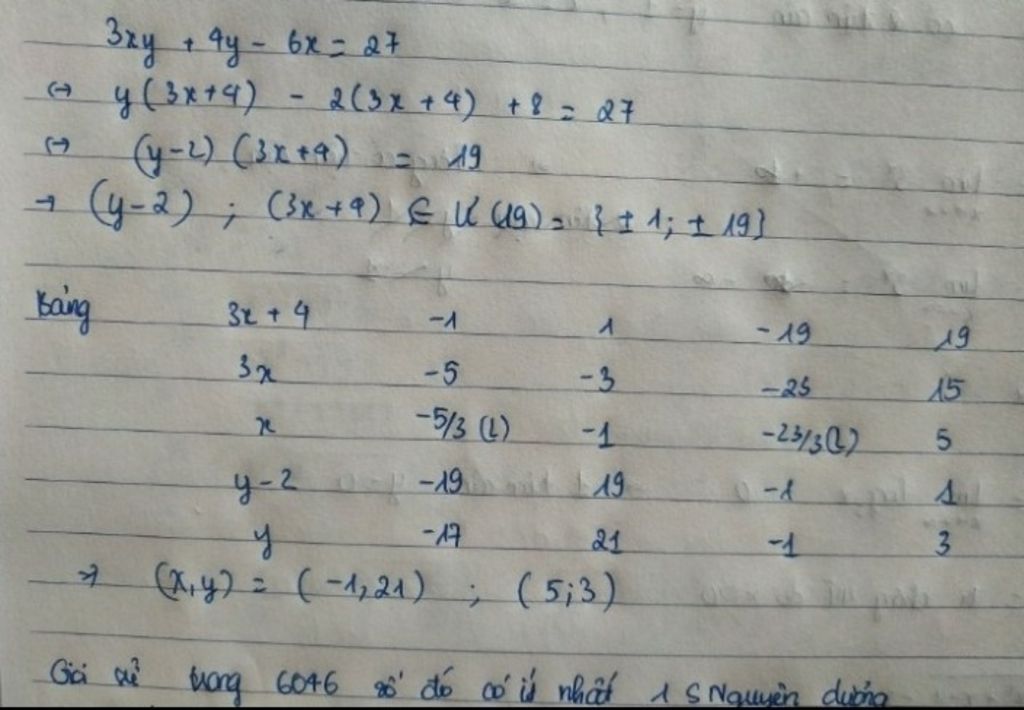 3xy + 4y - 6x = 27
<-> y(3x+4) - 2(3x+4) + 8 = 27
<-> (y-2) (3x+4) = 19
-> (y-2) ; (3x+4) ∈ Ư(19) = {± 1; ± 19}
Bảng 3x + 4 -1 1 -19 19
3x -5 -3 -23 15
x -5/3 (L) -1 -23/3 (L) 5
y-2 -19 19 -1 1
y -17 21 -1 3
-> (x,y) = (-1,21) ; (5;3)
Giả sử trong 6046 số đó có ít nhất 1 S Nguyên dương